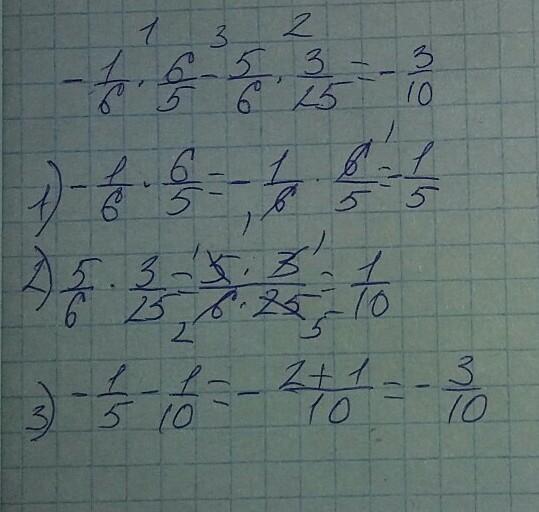 1 3 2
- 1/6 · 6/5 - 5/6 · 3/25 = - 3/10
1) - 1/6 · 6/5 = - 1/6 · 6/5 = - 1/5
1 1
2) 5/6 · 3/25 = 5 · 3 / 6 · 25 = 1/10
1 1 2 5
3) - 1/5 - 1/10 = - 2+1/10 = - 3/10